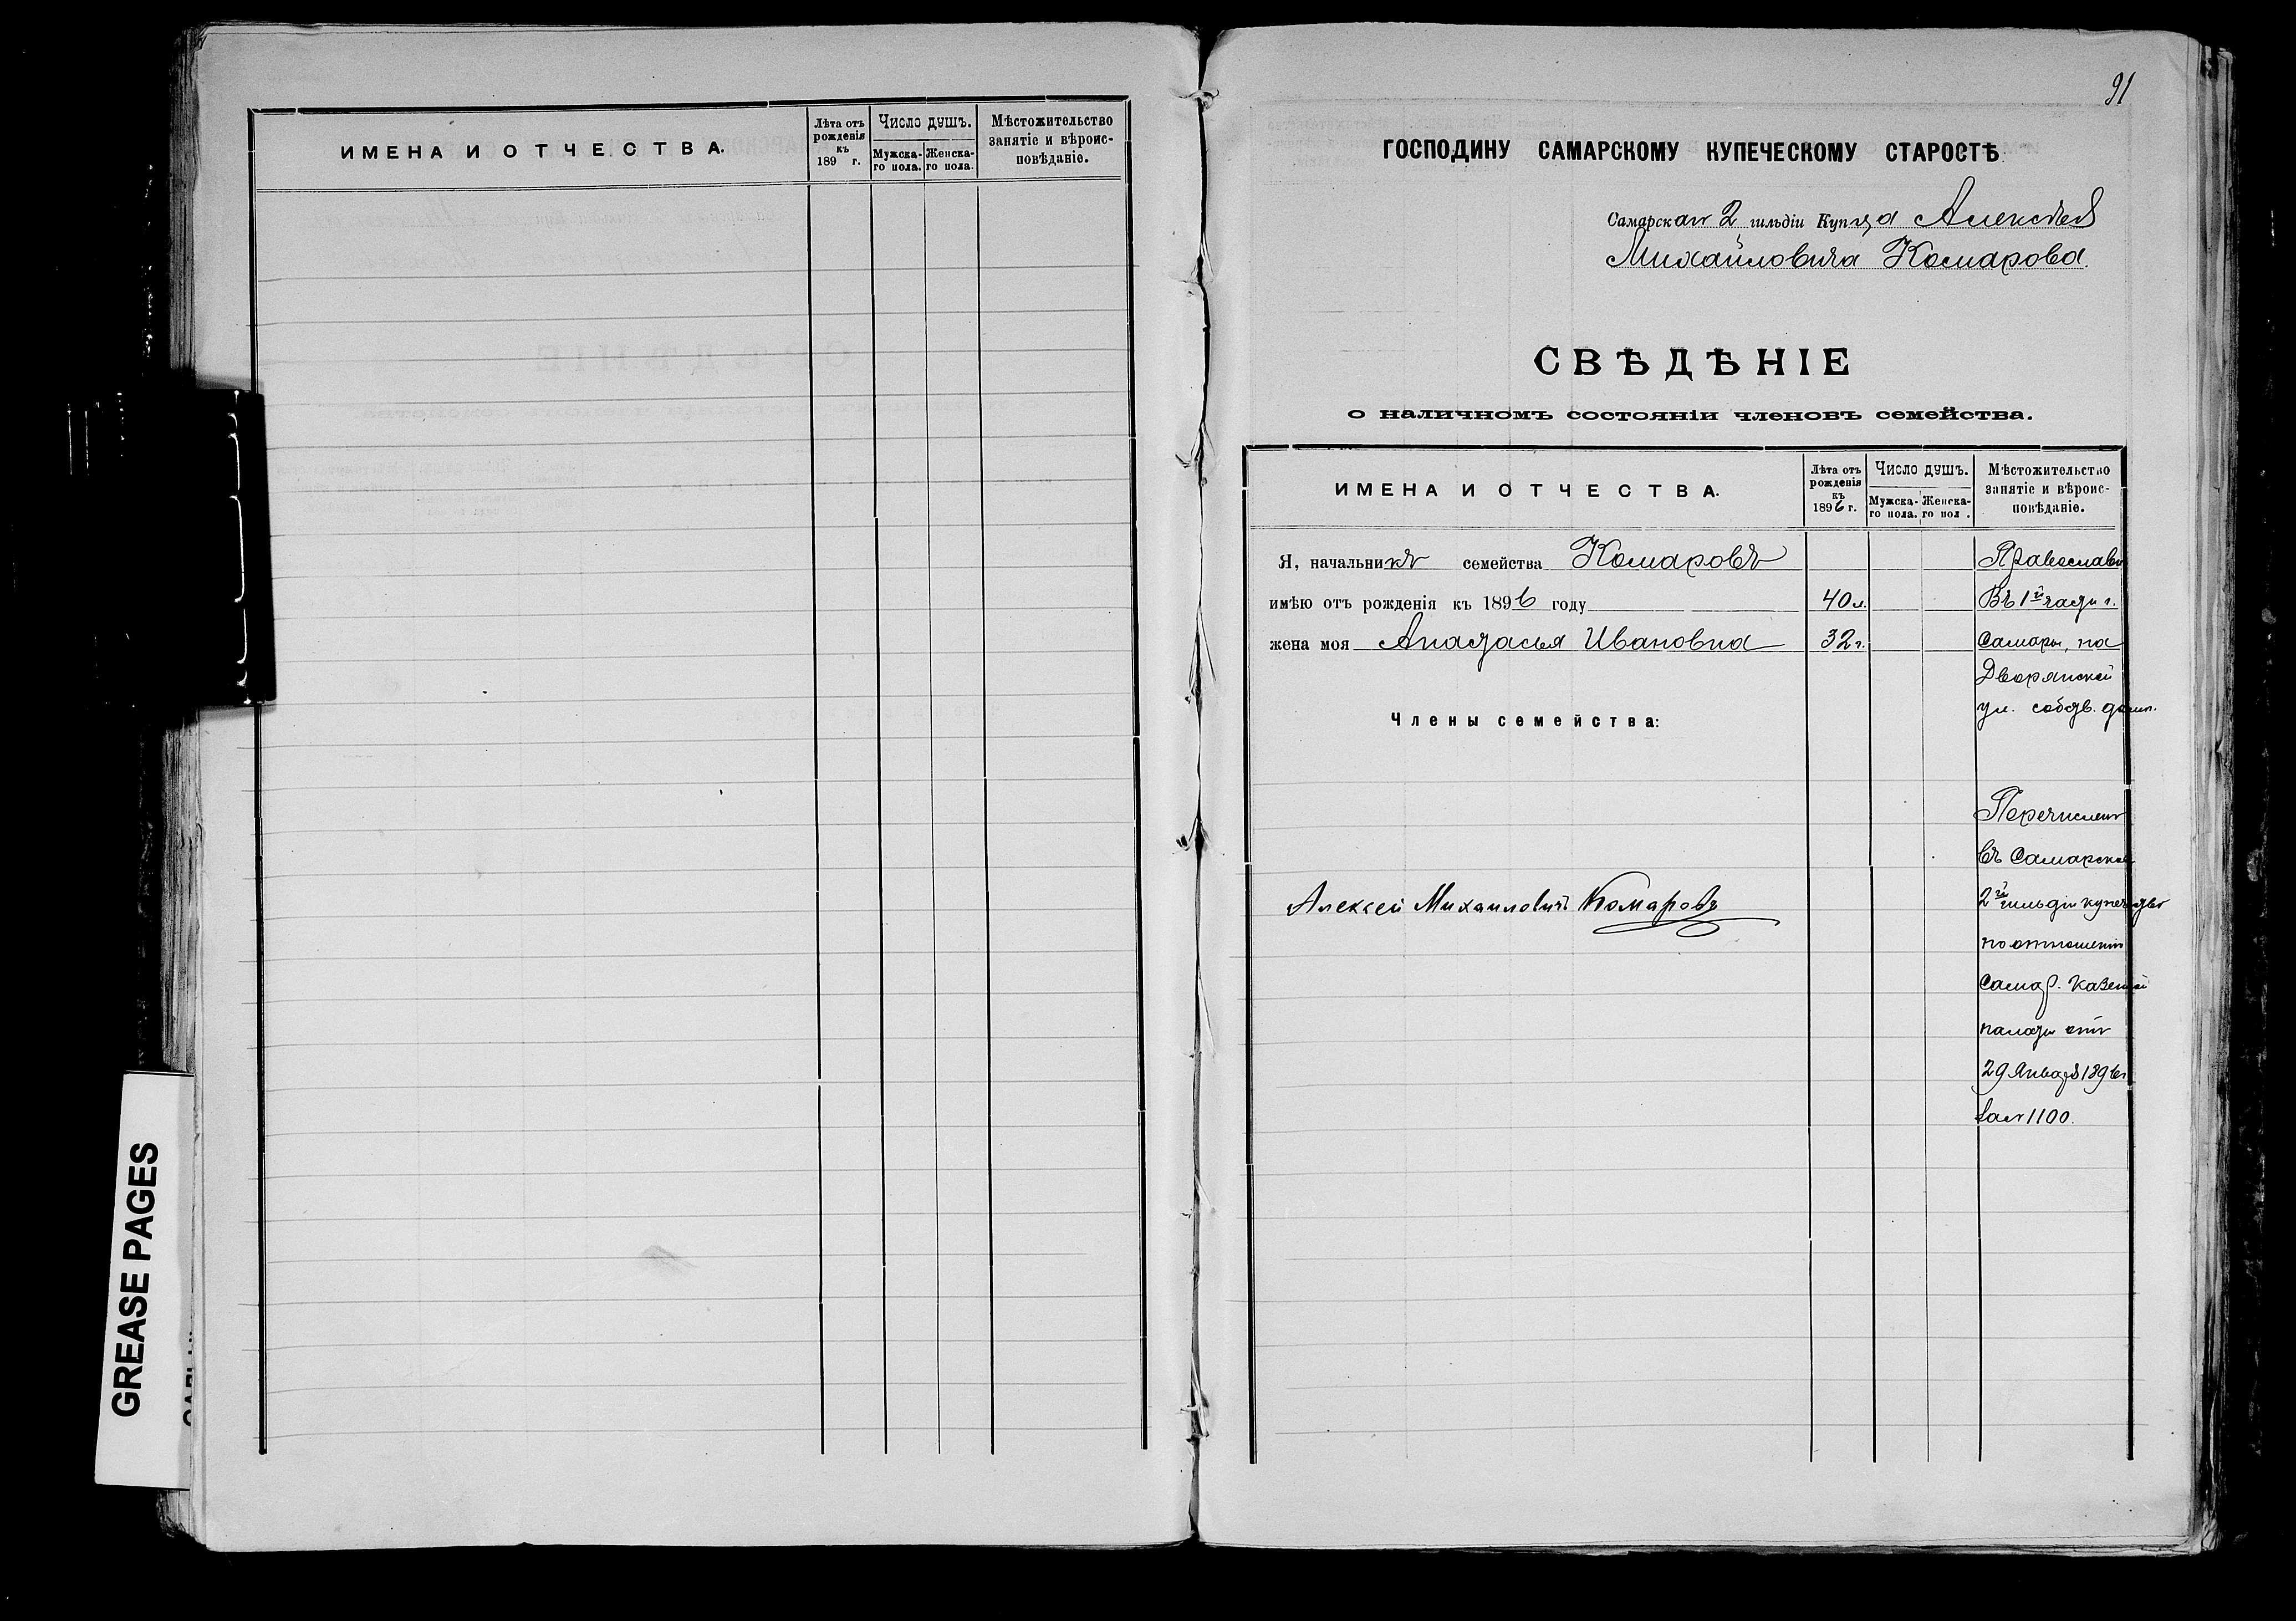 ИМЕНА И ОТЧЕСТВА.
Лѣта отъ рожденія къ 189 г.
Число душъ.
Мужска-го пола.
Женска-го пола.
Мѣстожительство занятіе и вѣроис-повѣданіе.
GREASE PAGES
91
ГОСПОДИНУ САМАРСКОМУ КУПЕЧЕСКОМУ СТАРОСТѢ
Самарскаго 2 гильдіи Купца Алексѣя
Михайловича Комарова.
СВѢДѢНІЕ
о наличномъ состояніи членовъ семейства.
ИМЕНА И ОТЧЕСТВА.
Лѣта отъ рожденія къ 1896 г.
Число душъ.
Мужска-го пола.
Женска-го пол .
Мѣстожительство занятіе и вѣроис-повѣданіе.
Я, начальникъ семейства Комаровъ
Православн
имѣю отъ рожденія къ 1896 году 40 л.
Въ 1й части г.
жена моя Анастасья Ивановна 32 г.
Самары, на
Дворянской
ул. собств. домъ.
Члены семейства:
Перечисленъ
въ Самарское
2й гильдіи купечество
Алексей Михаиловичъ Комаровъ
по отношенію
Самар. Казенной
палаты отъ
29 Января 1896 г.
за № 1100.